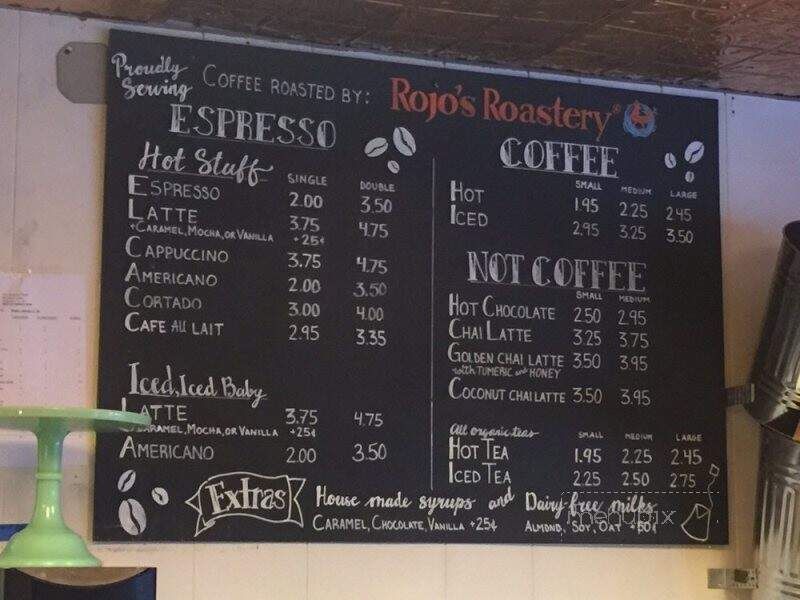 Proudly Serving COFFEE ROASTED BY: Rojo's Roastery
ESPRESSO
Hot Stuff SINGLE DOUBLE
ESPRESSO 2.00 3.50
LATTE 3.75 4.75
+CARAMEL, MOCHA, OR VANILLA +25¢
CAPPUCCINO 3.75 4.75
AMERICANO 2.00 3.50
CORTADO 3.00 4.00
CAFE AU LAIT 2.95 3.35
Iced, Iced Baby
LATTE 3.75 4.75
CARAMEL, MOCHA, OR VANILLA +25¢
AMERICANO 2.00 3.50
COFFEE
SMALL MEDIUM LARGE
HOT 1.95 2.25 2.45
ICED 2.95 3.25 3.50
NOT COFFEE
SMALL MEDIUM
HOT CHOCOLATE 2.50 2.95
CHAI LATTE 3.25 3.75
GOLDEN CHAI LATTE 3.50 3.95
with TUMERIC and HONEY
COCONUT CHAI LATTE 3.50 3.95
All organic teas SMALL MEDIUM LARGE
HOT TEA 1.95 2.25 2.45
ICED TEA 2.25 2.50 2.75
Extras House made syrups and Dairy-free milks
CARAMEL, CHOCOLATE, VANILLA +25¢ ALMOND, SOY, OAT +50¢
menupix